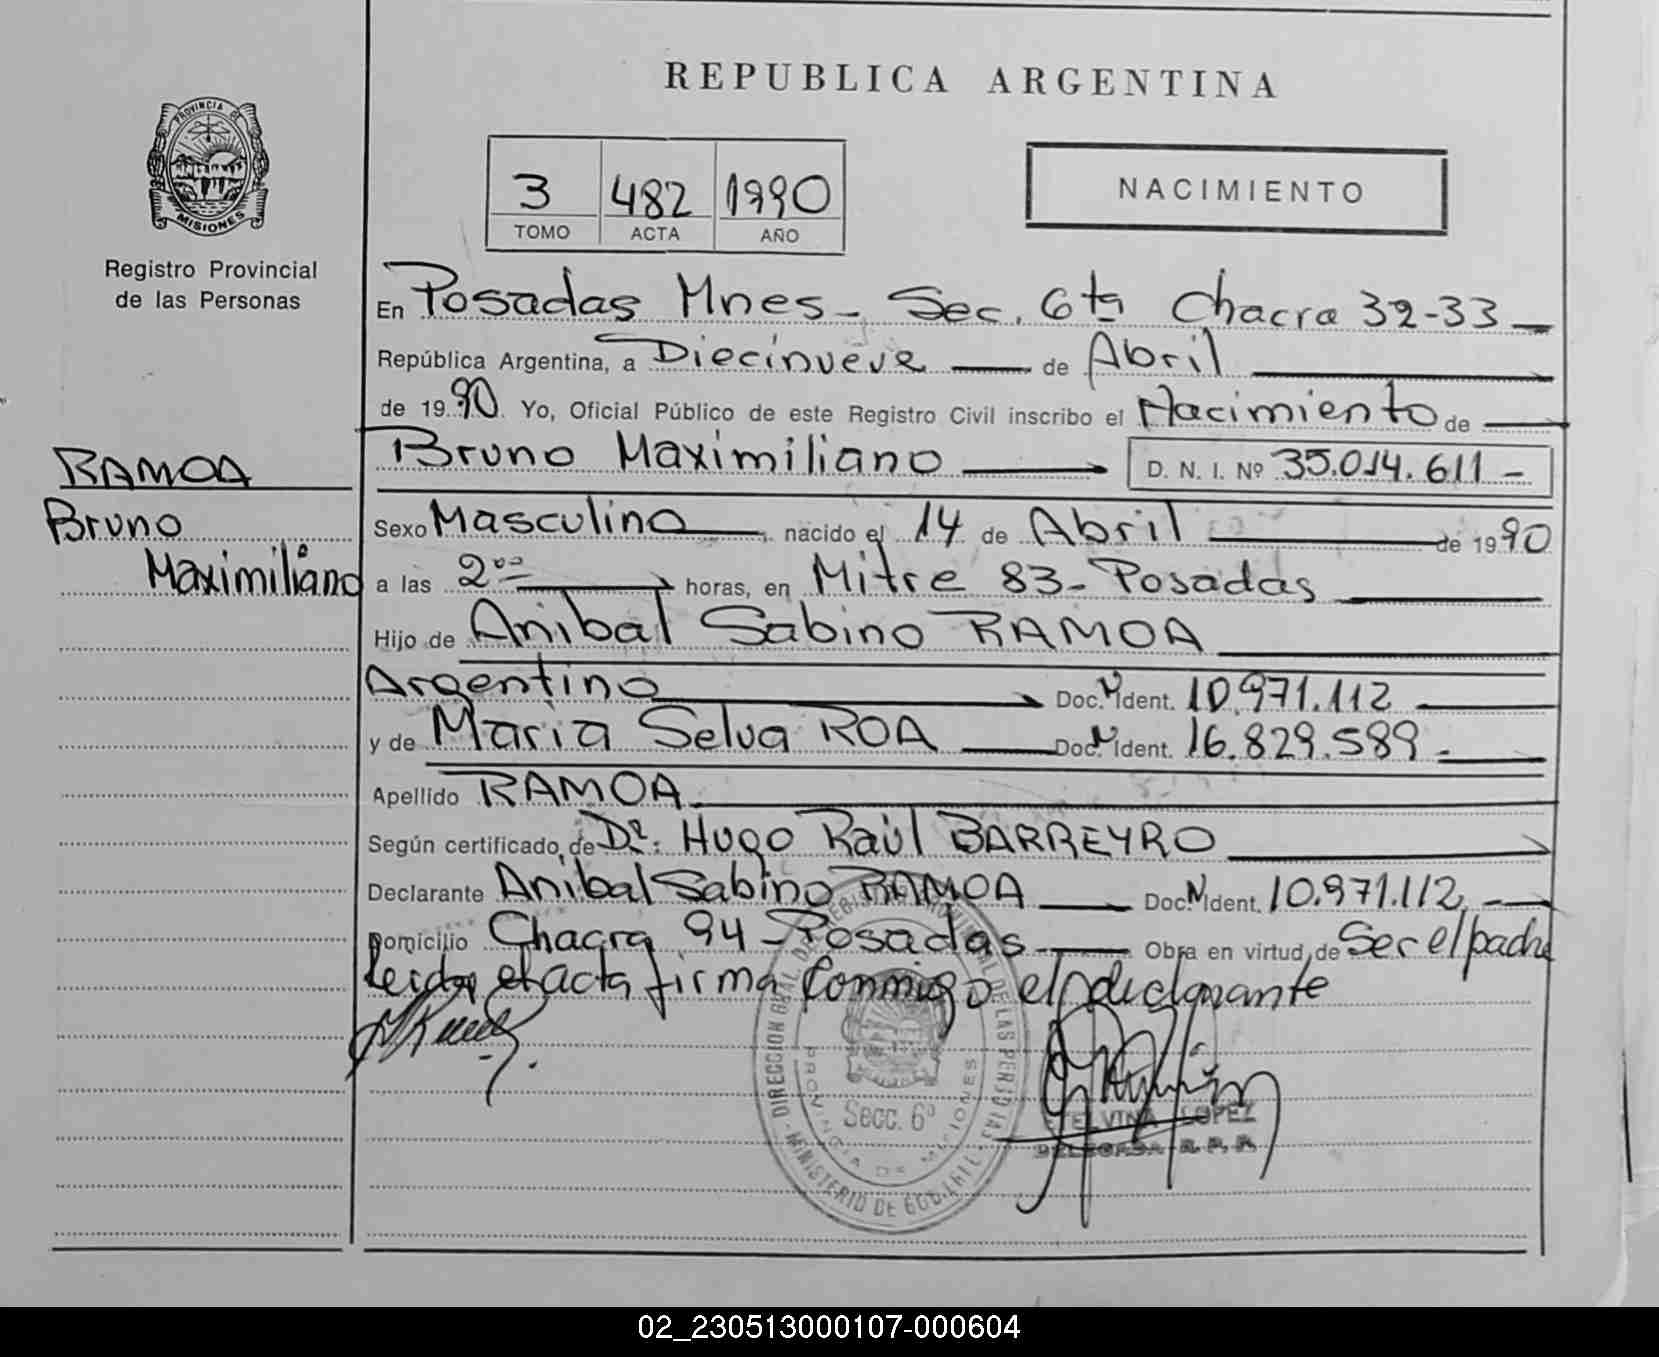 REPUBLICA ARGENTINA
PROVINCIA DE
MISIONES
Registro Provincial
de las Personas
3 482 1990
TOMO ACTA AÑO
NACIMIENTO
En Posadas Mnes - Sec. 6ta Chacra 32-33
República Argentina, a Diecinueve de Abril
de 1990. Yo, Oficial Público de este Registro Civil inscribo el Nacimiento de
RAMOA
Bruno
Maximiliano
Bruno Maximiliano D. N. I. Nº 35.014.611 -
Sexo Masculino, nacido el 14 de Abril de 1990
a las 2°° horas, en Mitre 83 - Posadas
Hijo de Anibal Sabino RAMOA
Argentino Doc. N Ident. 10.971.112
y de Maria Selva ROA Doc. N Ident. 16.829.589 -
Apellido RAMOA
Según certificado de Dr: Hugo Raúl BARREYRO
Declarante Anibal Sabino RAMOA Doc. N Ident. 10.971.112
Domicilio Chacra 94 - Posadas Obra en virtud de Ser el padre
leida el acta firma conmigo el declarante
DIRECCION GRAL. DEL REGISTRO PROVINCIAL DE LAS PERSONAS
PROVINCIA DE MISIONES
Secc. 6ª
MINISTERIO DE GOB.
ETELVINA LOPEZ
DELEGADA R. P. P.
02_230513000107-000604